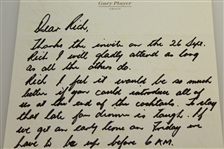 Gary Player
Dear Rich,
Thanks the invite on the 26 Sept.
Rich I will gladly attend as long
as all the others do.
Rich I felt it would be so much
better if you could introduce all of
us at the end of the cocktails. To stay
that late for dinner is tough. If
we get an early tee on Friday we
have to be up before 6 A.M.